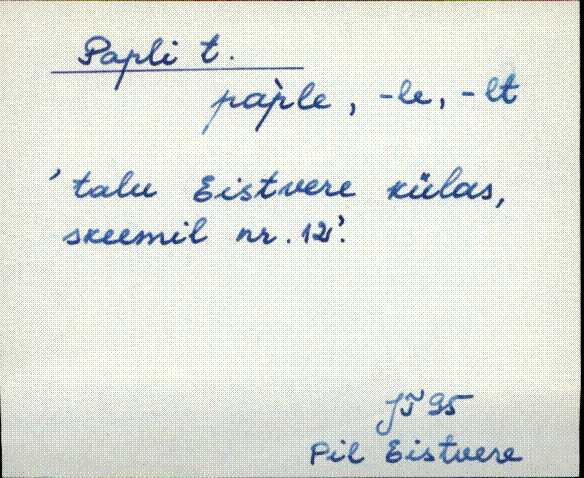 Papli t.
pap̀le, -le, -lt
'talu Eistvere külas,
skeemil nr. 12'.
JŠ 95
Pil Eistvere